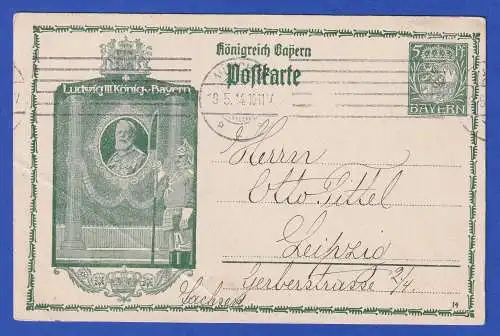 Königreich Bayern
Postkarte
5 Pf
BAYERN
19.5.14.10-11V
Ludwig III König v. Bayern
Herrn
Otto Tittel
Leipzig
Gerberstrasse 2/4.
Sachsen
14